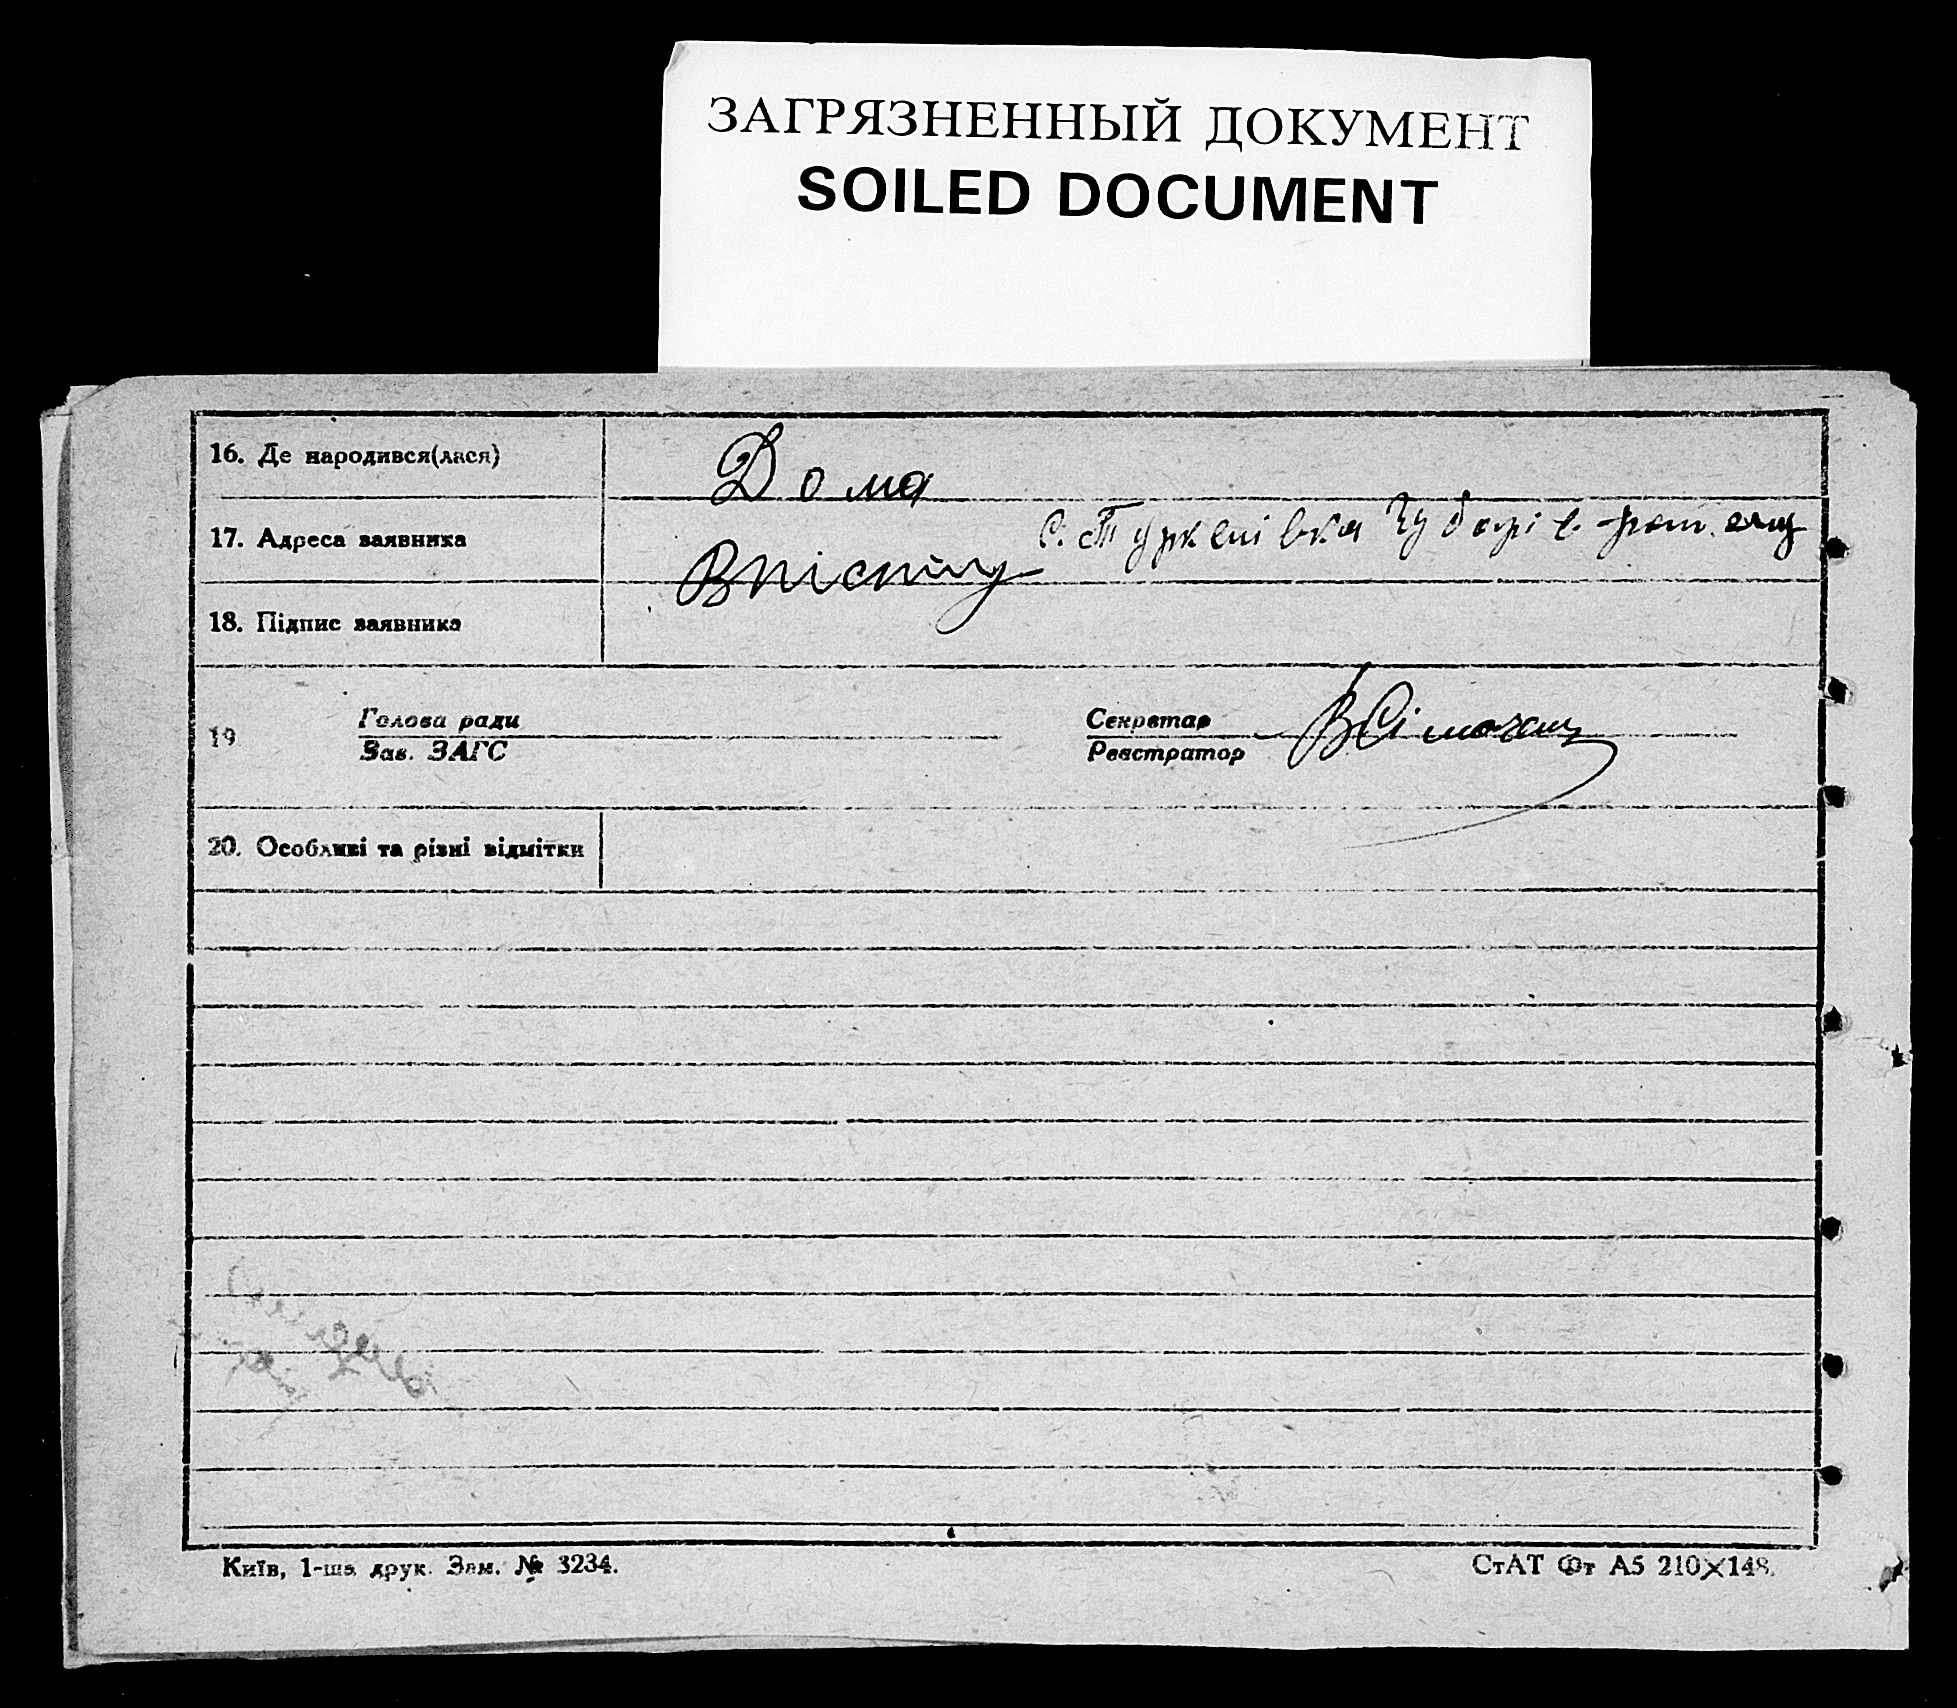 ЗАГРЯЗНЕННЫЙ ДОКУМЕНТ
SOILED DOCUMENT
16. Де народився(лася) Дома
17. Адреса заявника с.
18. Підпис заявника
19 Голова ради Секретар
Зав. ЗАГС Реєстратор
20. Особливі та різні відмітки
Київ, 1-ша друк. Зам. № 3234.
СтАТ Фт А5 210×148.